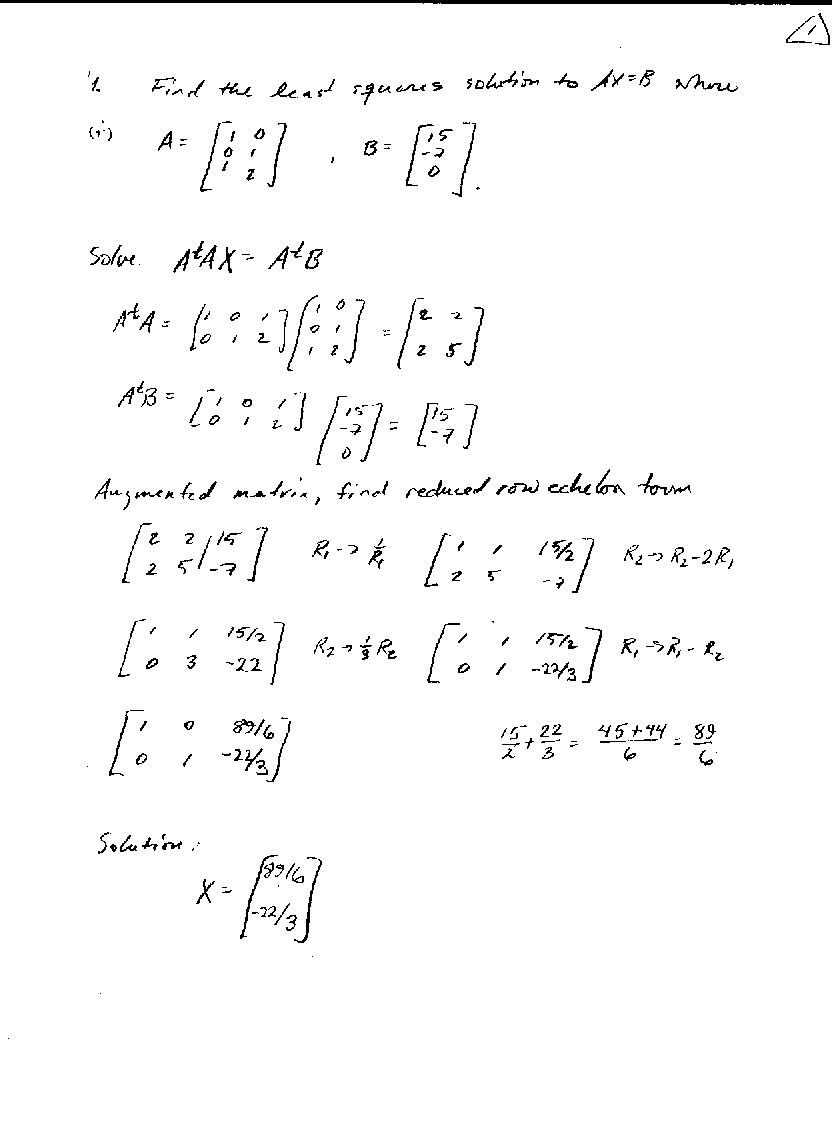 1
1. Find the least squares solution to AX=B where
(i) A = [1 0; 0 1; 1 2], B = [15; -7; 0].
Solve A^tAX = A^tB
A^tA = [1 0 1; 0 1 2][1 0; 0 1; 1 2] = [2 2; 2 5]
A^tB = [1 0 1; 0 1 2][15; -7; 0] = [15; -7]
Augmented matrix, find reduced row echelon form
[2 2 | 15; 2 5 | -7] R₁ → 1/R₁ [1 1 15/2; 2 5 -7] R₂ → R₂-2R₁
[1 1 15/2; 0 3 -22] R₂ → 1/3 R₂ [1 1 15/2; 0 1 -22/3] R₁ → R₁ - R₂
[1 0 89/6; 0 1 -22/3] 15/2 + 22/3 = (45+44)/6 = 89/6
Solution:
X = [89/6; -22/3]